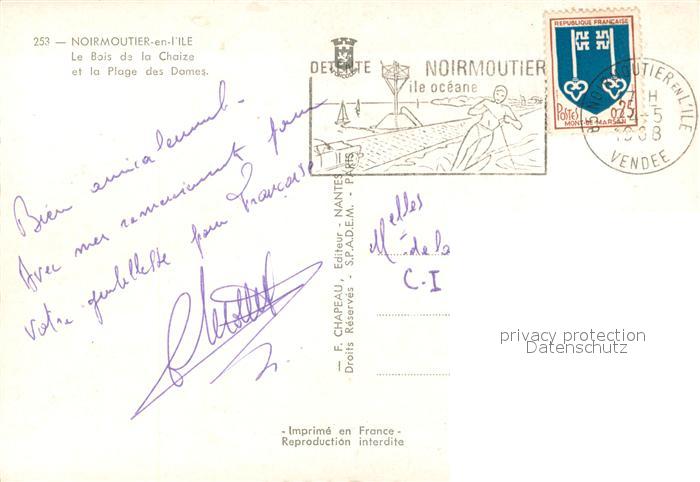 253 — NOIRMOUTIER-en-l'ILE
Le Bois de la Chaize
et la Plage des Dames.
DETENTE
NOIRMOUTIER
ile océane
REPUBLIQUE FRANÇAISE
POSTES
0,25
MONT-DE-MARSAN
NOIRMOUTIER EN L'ILE
17 H
-5
1968
VENDEE
Bien amicalement.
Avec mes remerciements pour
votre gentillesse pour Françoise
— F. CHAPEAU, Editeur - NANTES
Droits Réservés - S.P.A.D.E.M. - PARIS
Melles
M de la
C.I
privacy protection
Datenschutz
- Imprimé en France -
Reproduction interdite